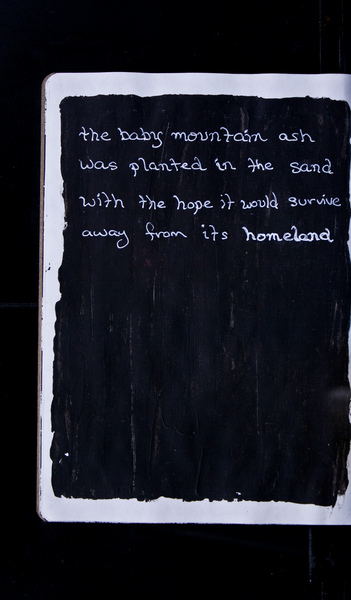 the baby mountain ash
was planted in the sand
with the hope it would survive
away from its homeland